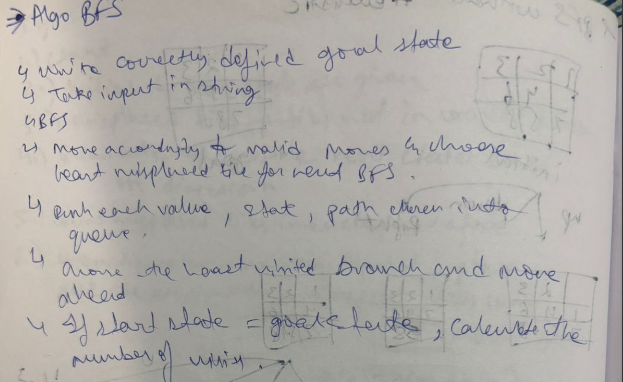 → Algo BFS
↳ Write correctly defined goal state
↳ Take input in string
↳ BFS
↳ Move accordingly to valid moves & choose
least misplaced tile for next BFS.
↳ push each value, state, path chosen into
queue.
↳ the least visited branch and move
ahead
↳ If start state = goal state, calculate the
number of visits.